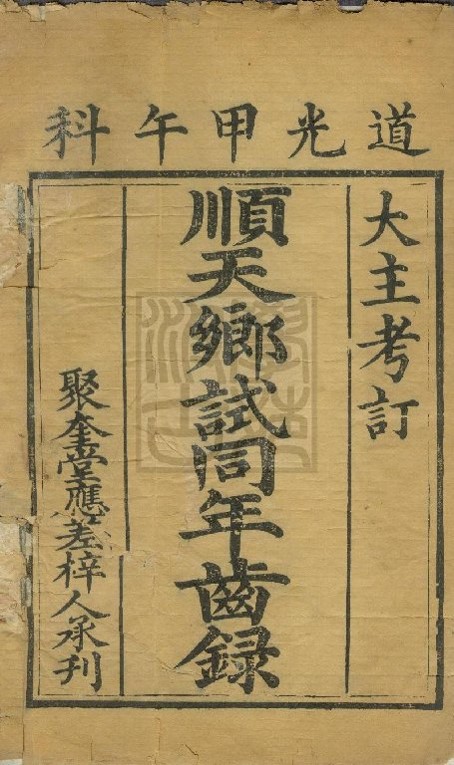 道光甲午科
大主考訂
順天鄉試同年齒錄
聚奎堂應差梓人承刊